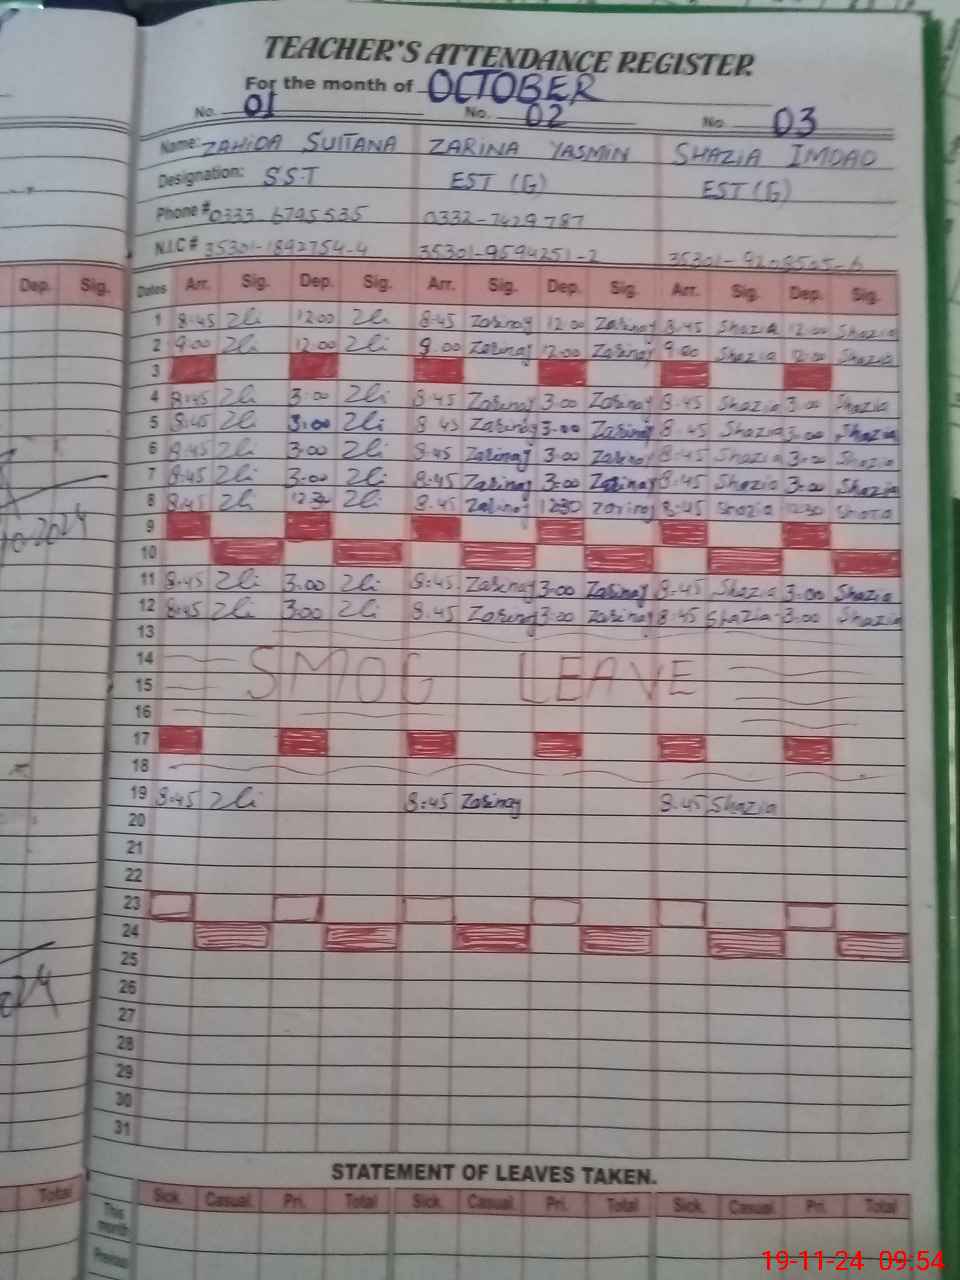 TEACHER'S ATTENDANCE REGISTER
For the month of OCTOBER
No. 01 No. 02 No. 03
Name: ZAHIDA SULTANA ZARINA YASMIN SHAZIA IMDAD
Designation: S.S.T EST (G) EST (G)
Phone # 0333-6795535 0332-7429787
N.I.C # 35301-1892754-4 35301-9594251-2 35301-9208505-6
Dep. Sig. Dates Arr. Sig. Dep. Sig. Arr. Sig. Dep. Sig. Arr. Sig. Dep. Sig.
1 8:45 Zli 12:00 Zli 8:45 Zarinay 12:00 Zarinay 8:45 Shazia 12:00 Shazia
2 9:00 Zli 12:00 Zli 9:00 Zarinay 12:00 Zarinay 9:00 Shazia 12:00 Shazia
3
4 8:45 Zli 3:00 Zli 8:45 Zarinay 3:00 Zarinay 8:45 Shazia 3:00 Shazia
5 8:45 Zli 3:00 Zli 8:45 Zarinay 3:00 Zarinay 8:45 Shazia 3:00 Shazia
6 8:45 Zli 3:00 Zli 8:45 Zarinay 3:00 Zarinay 8:45 Shazia 3:00 Shazia
7 8:45 Zli 3:00 Zli 8:45 Zarinay 3:00 Zarinay 8:45 Shazia 3:00 Shazia
8 8:45 Zli 12:30 Zli 8:45 Zarinay 12:30 Zarinay 8:45 Shazia 12:30 Shazia
9
10
11 8:45 Zli 3:00 Zli 8:45 Zarinay 3:00 Zarinay 8:45 Shazia 3:00 Shazia
12 8:45 Zli 3:00 Zli 8:45 Zarinay 3:00 Zarinay 8:45 Shazia 3:00 Shazia
13
14 SMOG LEAVE
15
16
17
18
19 8:45 Zli 8:45 Zarinay 8:45 Shazia
20
21
22
23
24
25
26
27
28
29
30
31
STATEMENT OF LEAVES TAKEN.
Total Sick. Casual. Pri. Total Sick. Casual. Pri. Total Sick. Casual. Pri. Total
This month
Previous
19-11-24 09:54